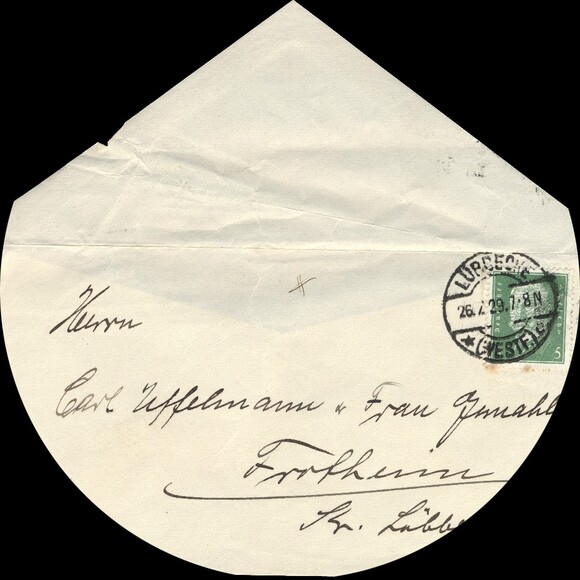 LÜBBECKE
26.7.29.7-8N
* (WESTF.) c
5
Herrn
Carl Uffelmann u Frau Gemahl
Frotheim
Kr. Lübbe